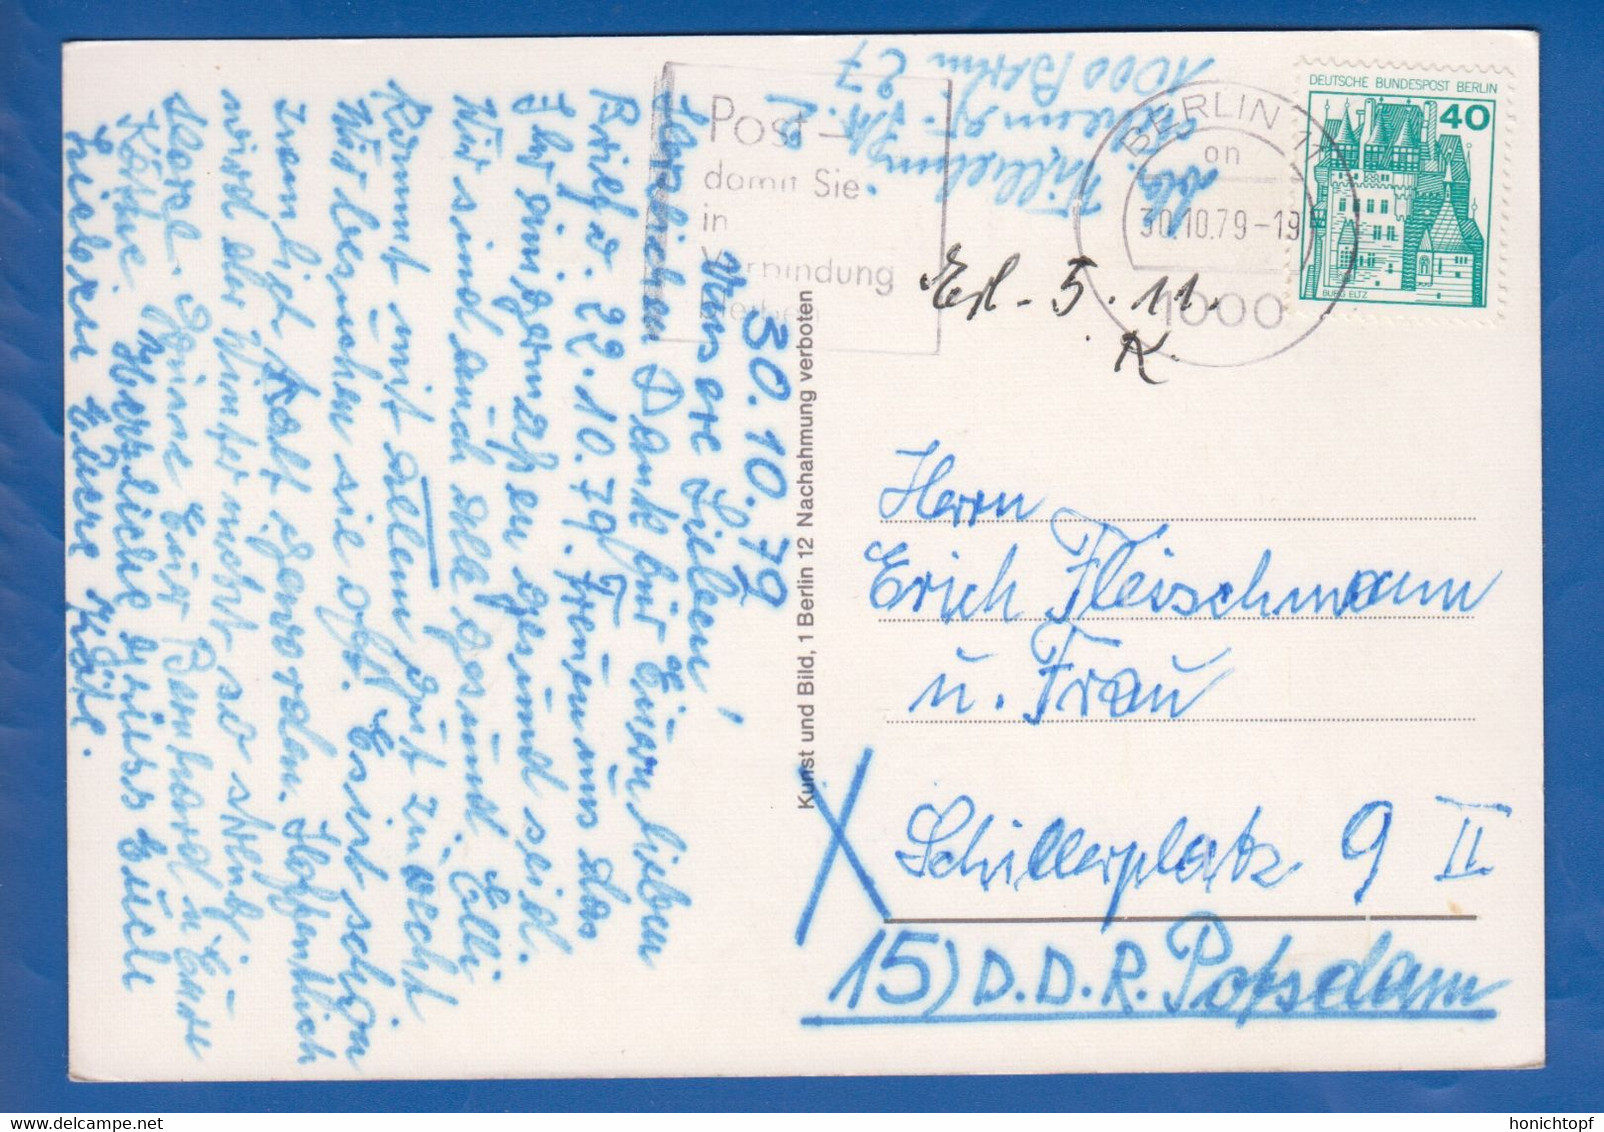 30.10.79
Unsere Lieben!
Herzlichen Dank für Euren lieben
Brief v. 22.10.79. Freuen uns das
Ihr einigermaßen gesund seid.
Wir sind auch alla gesund Elli
kommt mit allem gut zurecht.
Wir besuchen sie oft. Es ist schon
zamlich kalt geworden. Hoffentlich
wird der Winter nicht so streng.
Käthe
Herzliche Grüsse Euch
Lieben Eure Käte.
1000 Berlin 27
Post –
damit Sie
in
Verbindung
bleiben
BERLIN 11
on
30.10.79-19
1000
DEUTSCHE BUNDESPOST BERLIN
40
BURG ELTZ
Erl. 5.11.
K.
Kunst und Bild, 1 Berlin 12 Nachahmung verboten
Herrn
Erich Fleischmann
u. Frau
Schillerplatz 9 II
15) D.D.R. Potsdam
honichtopf